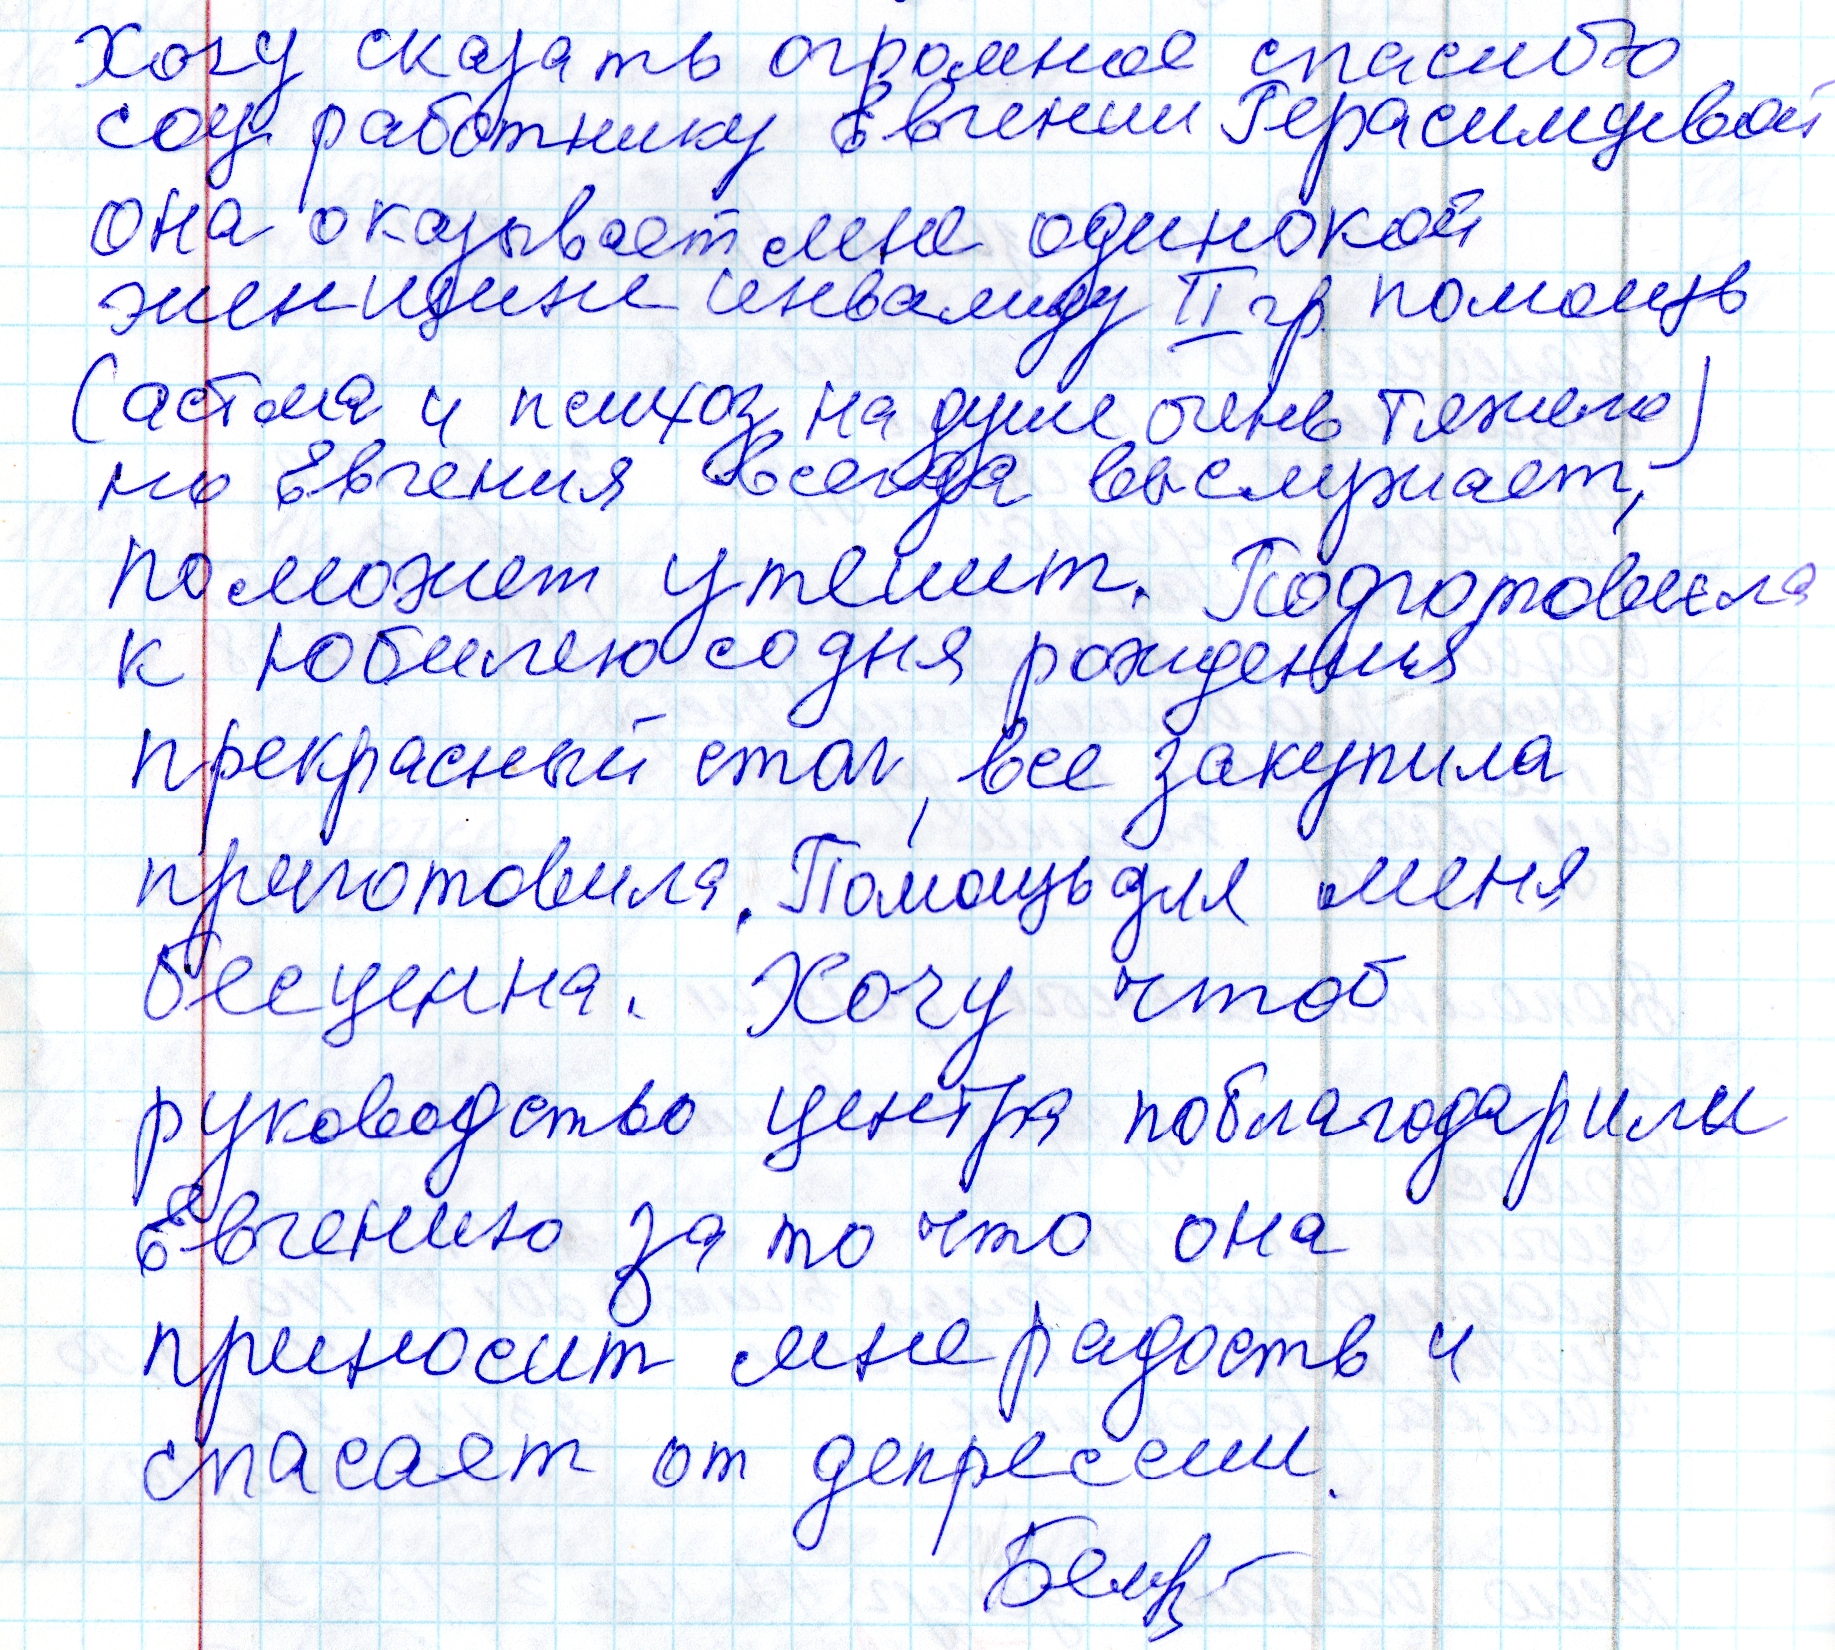 Хочу сказать огромное спасибо
соц. работнику Евгении Герасимовой
она оказывает мне одинокой
женщине инвалиду II гр помощь
(астма и психоз, на душе очень тяжело)
но Евгения всегда выслужает,
поможет утешит. Подготовила
к юбилею со дня рождения
прекрасный стол, все закупила
приготовила. Помощь для меня
бесценна. Хочу чтоб
руководство центра поблагодарили
Евгению за то что она
приносит мне радость и
спасает от депрессии.